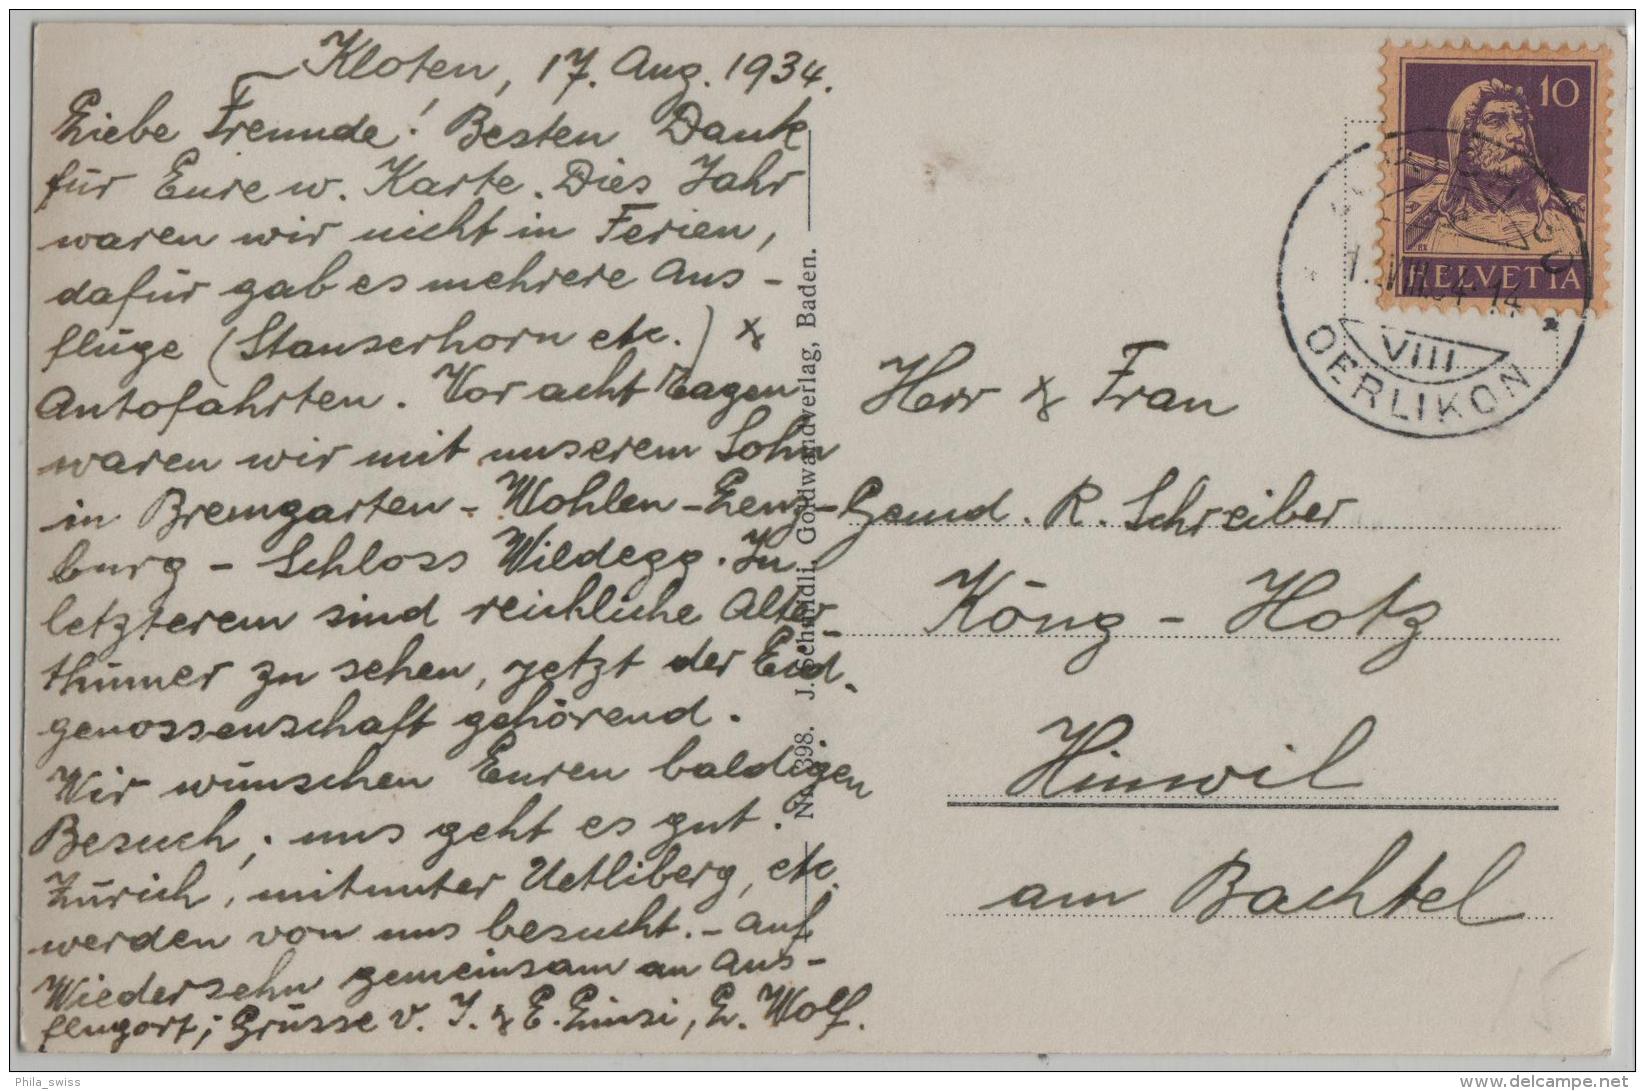 Kloten, 17. Aug. 1934.
Liebe Freunde! Besten Dank
für Eure w. Karte. Dies Jahr
waren wir nicht in Ferien,
dafür gab es mehrere Aus-
flüge (Stanserhorn etc.) &
Autofahrten. Vor acht Tagen
waren wir mit unserem Sohn
in Bremgarten - Wohlen - Lenz-
burg - Schloss Wildegg. In
letzterem sind reichliche Alter-
thümer zu sehen, jetzt der Eid-
genossenschaft gehörend.
Wir wünschen Euren baldigen
Besuch; uns geht es gut.
Zürich, mitunter Uetliberg, etc.
werden von uns besucht. - Auf
Wiedersehn gemeinsam an Aus-
flugort; Grüsse v. J. & E. L. Wolf.
No. 398. J. Schmidli, Goldwandverlag, Baden.
10
HELVETIA
VIII
OERLIKON
Herr & Frau
Gemd. R. Schreiber
Köng - Hotz
Hinwil
am Bachtel
Phila_swiss
www.delcampe.net